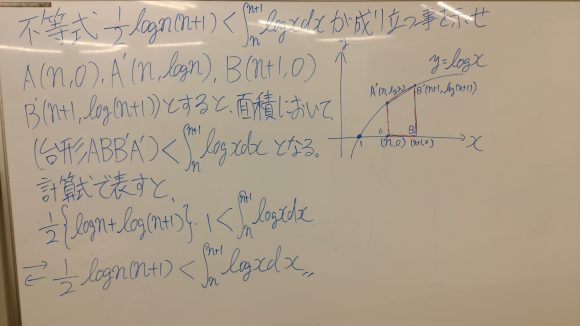 不等式 1/2 logn(n+1) < ∫_n^{n+1} logxdx が成り立つ事を示せ
A(n,0), A'(n,logn), B(n+1,0)
B'(n+1,log(n+1))とすると、面積において、
(台形ABB'A') < ∫_n^{n+1} logxdx となる。
計算式で表すと、
1/2{logn+log(n+1)}・1 < ∫_n^{n+1} logxdx
⇄ 1/2 logn(n+1) < ∫_n^{n+1} logxdx 〃
y
y=logx
A'(n,logn)
B'(n+1,log(n+1))
A
B
x
1
(n,0)
(n+1,0)